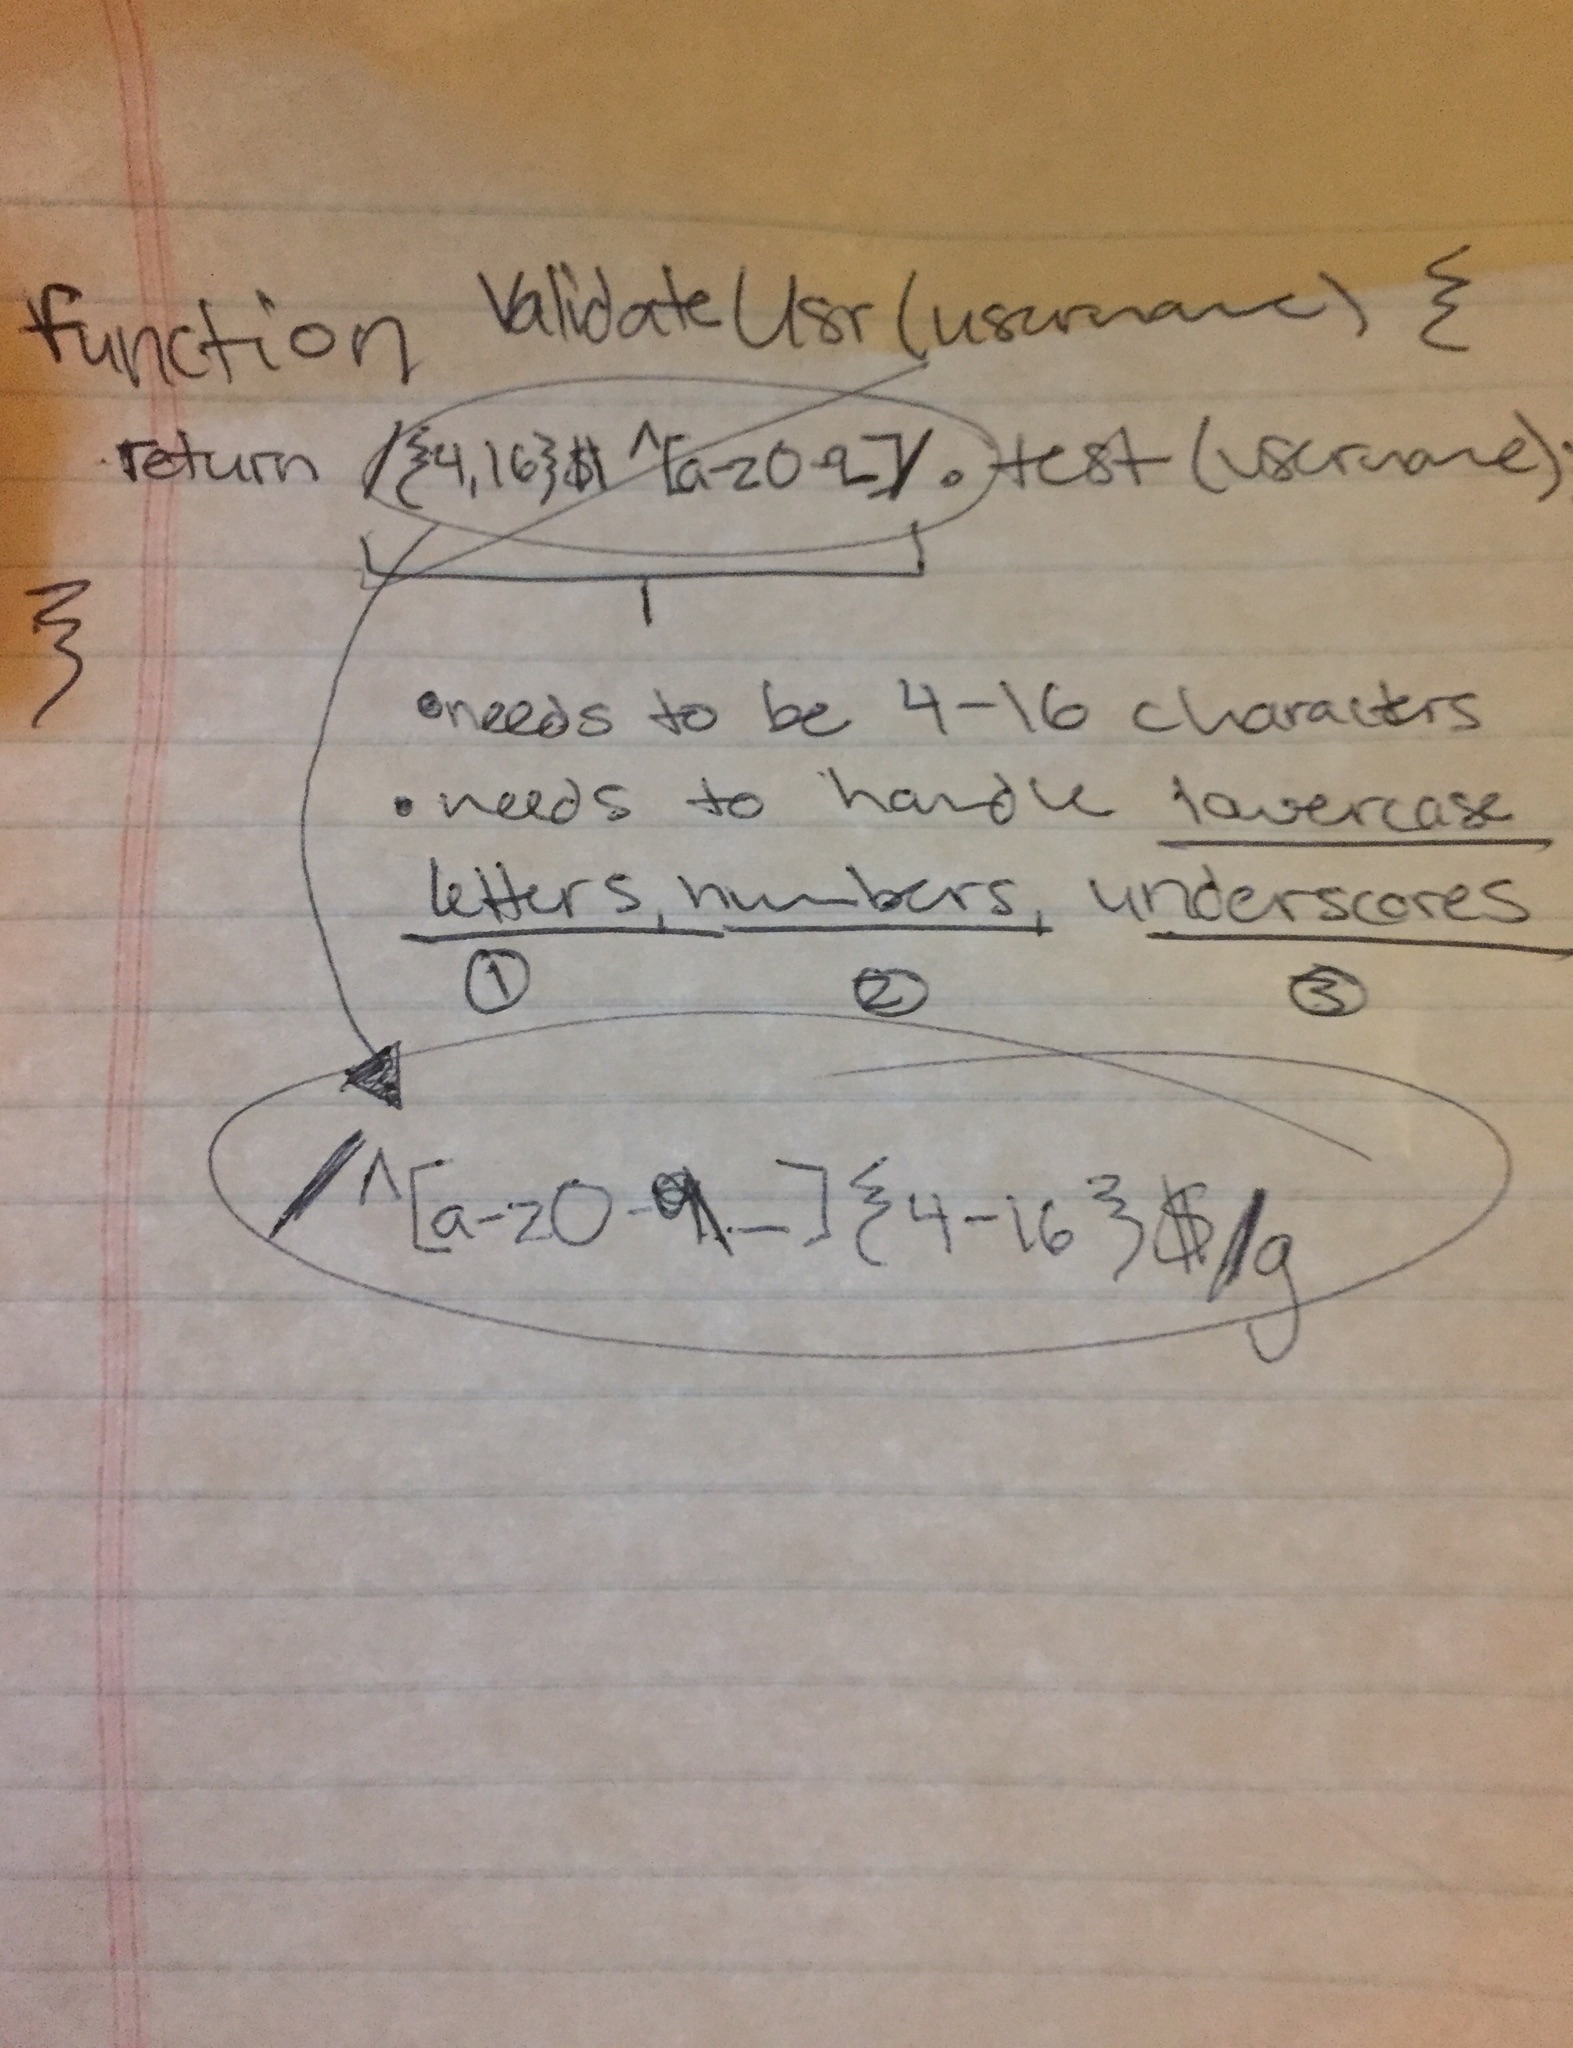 function validateUsr(username) {
return /{4,16}$^[a-z0-9_]/.test(username);
}
•needs to be 4-16 characters
•needs to handle lowercase
letters, numbers, underscores
① ② ③
/^[a-z0-9\_]{4-16}$/g